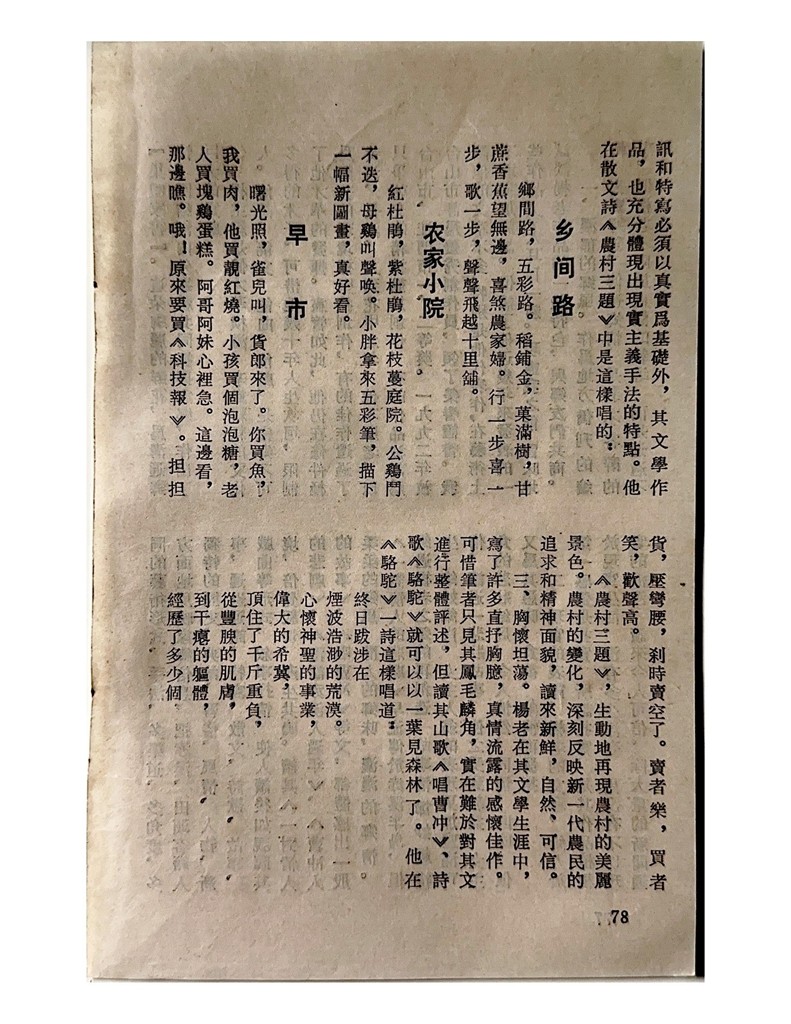 訊和特寫必須以真實爲基礎外，其文學作
品，也充分體現出現實主義手法的特點。他
在散文詩《農村三題》中是這樣唱的：
乡间路
鄉間路，五彩路。稻鋪金，菓滿樹，甘
蔗香蕉望無邊，喜煞農家婦。行一步喜一
步，歌一步，聲聲飛越十里舖。
农家小院
紅杜鵑，紫杜鵑，花枝蔓庭院。公鷄鬥
不迭，母鷄叫聲喚。小胖拿來五彩筆，描下
一幅新圖畫，真好看。
早市
曙光照，雀兒叫，貨郎來了。你買魚，
我買肉，他買靚紅燒。小孩買個泡泡糖，老
人買塊鷄蛋糕。阿哥阿妹心裡急。這邊看，
那邊瞧。哦！原來要買《科技報》。担担
貨，壓彎腰，刹時賣空了。賣者樂，買者
笑，歡聲高。
《農村三題》，生動地再現農村的美麗
景色。農村的變化，深刻反映新一代農民的
追求和精神面貌，讀來新鮮，自然、可信。
三、胸懷坦蕩。楊老在其文學生涯中，
寫了許多直抒胸臆，真情流露的感懷佳作。
可惜筆者只見其鳳毛麟角，實在難於對其文
進行整體評述，但讀其山歌《唱曹冲》、詩
歌《駱駝》就可以以一葉見森林了。他在
《駱駝》一詩這樣唱道：
終日跋涉在
煙波浩渺的荒漠。
心懷神聖的事業，
偉大的希冀，
頂住了千斤重負，
從豐腴的肌膚，
到干癟的軀體，
經歷了多少個
78